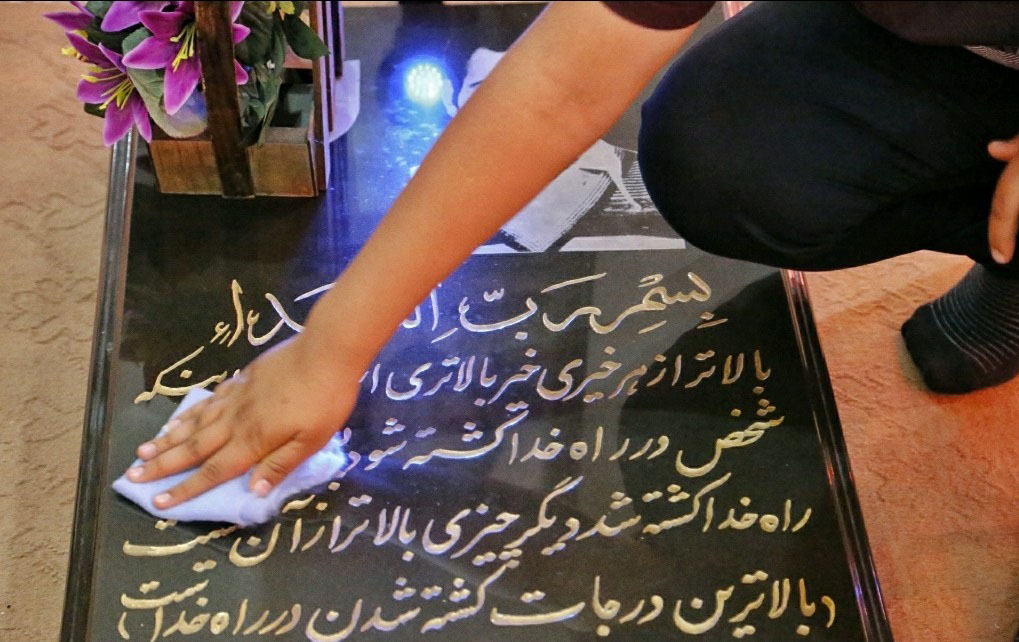 بِسْمِ رَبِّ
بالاتر از هر خیری خیر بالاتری ینکه
شخص در راه خدا کشته شود
راه خدا کشته شد دیگر چیزی بالاتر از آن نیست
(بالاترین درجات کشته شدن در راه خداست)